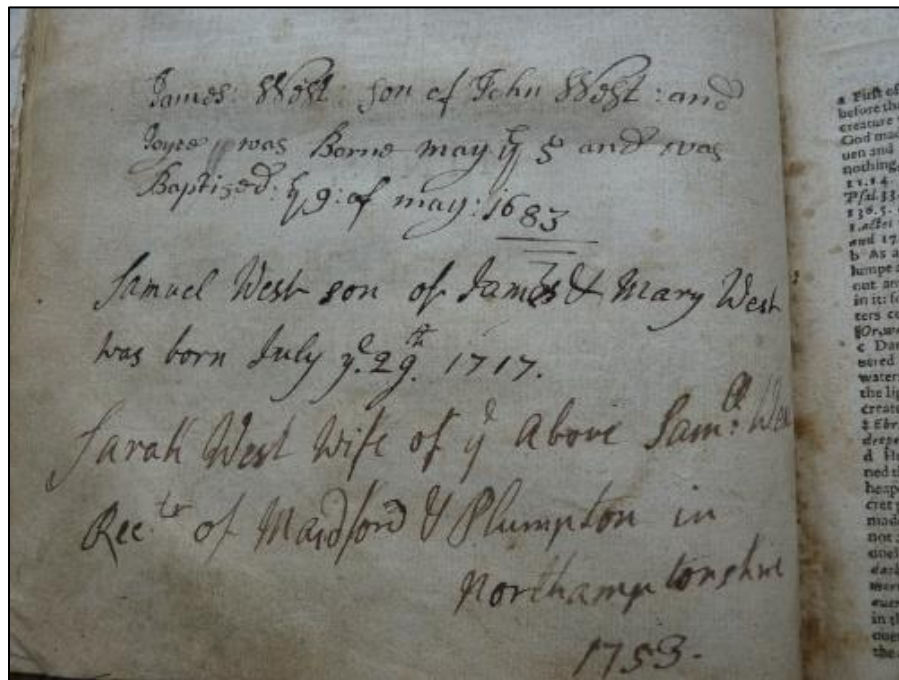 James: West: son of John West: and
Joyce was Borne may ye 5 and was
Baptised: ye 9: of may: 1683
Samuel West son of James & Mary West
was born July ye. 29th. 1717.
Sarah West Wife of ye Above Saml: Wes
Recr of Maidford & Plumpton in
Northamptonshire
1753.
a First of
before tha
creature
God mad
uen and
nothing,
11.14.
Psal.33.
136.5.
1.actes
and 17
b As a
lumpe
out an
in it: fo
ters co
‖Or, w
c Dar
uered
waters
the lig
create
‡ Ebr
deepe
d He
ned th
heape
cret p
made
not
in th
the